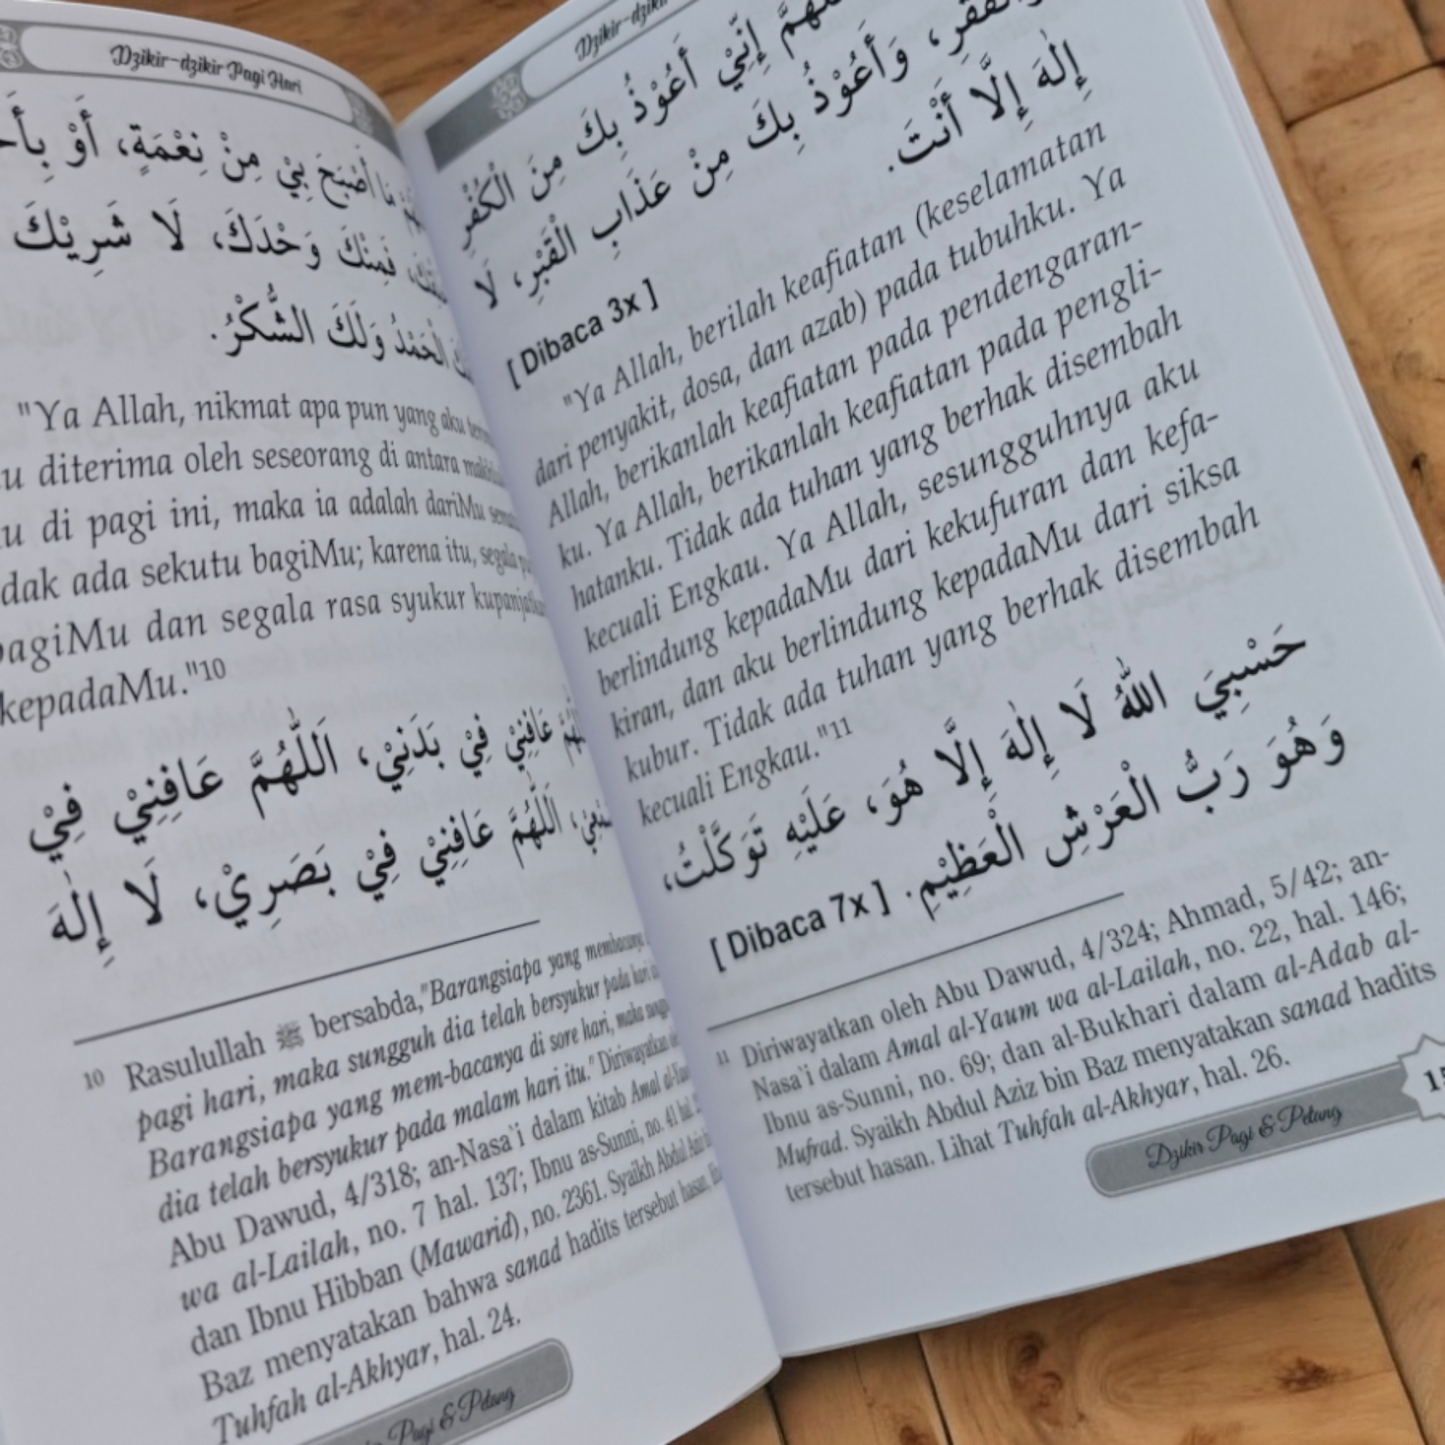 Dzikir-dzikir Pagi Hari
مَا أَصْبَحَ بِيْ مِنْ نِعْمَةٍ، أَوْ
فَمِنْكَ وَحْدَكَ، لَا شَرِيْكَ
الْحَمْدُ وَلَكَ الشُّكْرُ.
"Ya Allah, nikmat apa pun yang aku
diterima oleh seseorang di antara
di pagi ini, maka ia adalah dariMu
ada sekutu bagiMu; karena itu, segala
bagiMu dan segala rasa syukur
kepadaMu."10
عَافِنِيْ فِيْ بَدَنِيْ، اَللّٰهُمَّ عَافِنِيْ فِيْ
اَللّٰهُمَّ عَافِنِيْ فِيْ بَصَرِيْ، لَا إِلٰهَ
10 Rasulullah ﷺ bersabda,"Barangsiapa yang
pagi hari, maka sungguh dia telah bersyukur pada hari
Barangsiapa yang mem-bacanya di sore hari, maka
dia telah bersyukur pada malam hari itu." Diriwayatkan
Abu Dawud, 4/318; an-Nasa`i dalam kitab Amal
wa al-Lailah, no. 7 hal. 137; Ibnu as-Sunni, no. 41
dan Ibnu Hibban (Mawarid), no. 2361. Syaikh Abdul Aziz
Baz menyatakan bahwa sanad hadits tersebut hasan.
Tuhfah al-Akhyar, hal. 24.
Pagi & Petang
إِنِّيْ أَعُوْذُ بِكَ مِنَ الْكُفْرِ
وَأَعُوْذُ بِكَ مِنْ عَذَابِ الْقَبْرِ، لَا
إِلٰهَ إِلَّا أَنْتَ.
[ Dibaca 3x ]
"Ya Allah, berilah keafiatan (keselamatan
dari penyakit, dosa, dan azab) pada tubuhku. Ya
Allah, berikanlah keafiatan pada pendengaran-
ku. Ya Allah, berikanlah keafiatan pada pengli-
hatanku. Tidak ada tuhan yang berhak disembah
kecuali Engkau. Ya Allah, sesungguhnya aku
berlindung kepadaMu dari kekufuran dan kefa-
kiran, dan aku berlindung kepadaMu dari siksa
kubur. Tidak ada tuhan yang berhak disembah
kecuali Engkau."11
حَسْبِيَ اللّٰهُ لَا إِلٰهَ إِلَّا هُوَ، عَلَيْهِ تَوَكَّلْتُ،
وَهُوَ رَبُّ الْعَرْشِ الْعَظِيْمِ. [ Dibaca 7x ]
11 Diriwayatkan oleh Abu Dawud, 4/324; Ahmad, 5/42; an-
Nasa`i dalam Amal al-Yaum wa al-Lailah, no. 22, hal. 146;
Ibnu as-Sunni, no. 69; dan al-Bukhari dalam al-Adab al-
Mufrad. Syaikh Abdul Aziz bin Baz menyatakan sanad hadits
tersebut hasan. Lihat Tuhfah al-Akhyar, hal. 26.
Dzikir Pagi & Petang